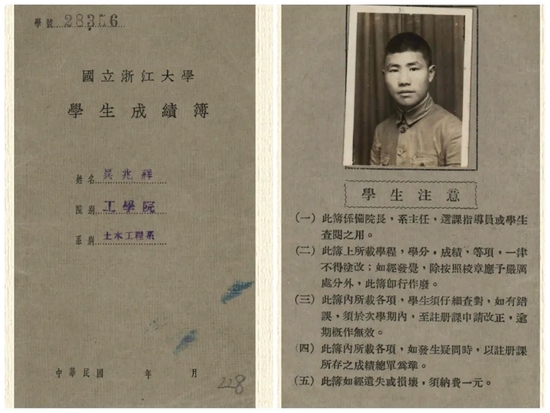 學號 28356
國立浙江大學
學生成績簿
姓名 兆祥
院別 工學院
系別 土木工程系
中華民國 年 月
228
學生注意
(一) 此簿係備院長，系主任，選課指導員或學生
查閱之用。
(二) 此簿上所載學程，學分，成績，等項，一律
不得塗改；如經發覺，除按照校章應予嚴厲
處分外，此簿卽行作廢。
(三) 此簿內所載各項，學生須仔細查對，如有錯
誤，須於次學期內，至註册課申請改正，逾
期概作無效。
(四) 此簿內所載各項，如發生疑問時，以註册課
所存之成績總單爲準。
(五) 此簿如經遺失或損壞，須納費一元。